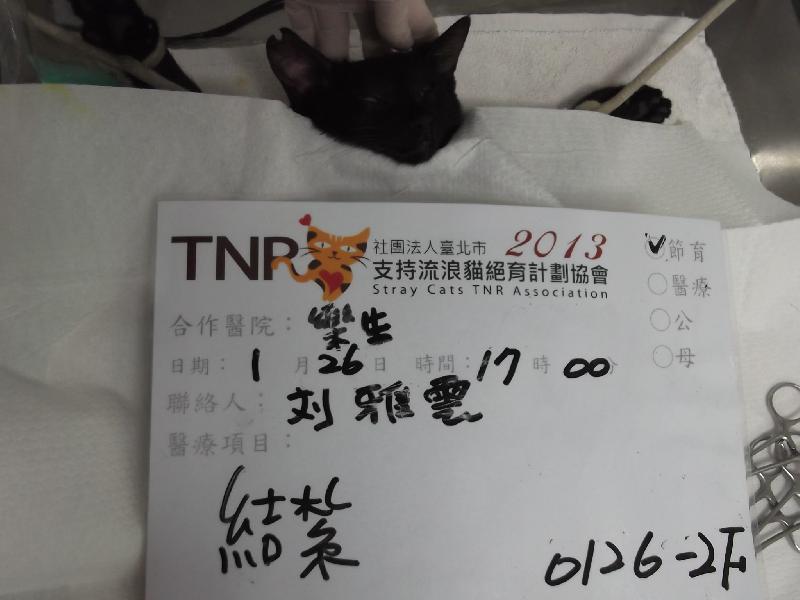 TNR 社團法人臺北市 2013
支持流浪貓絕育計劃協會
Stray Cats TNR Association
✓節育
○醫療
○公
○母
合作醫院：樂生
日期：1月26日 時間：17時00分
聯絡人：刘雅雲
醫療項目：
結紮
0126-2F